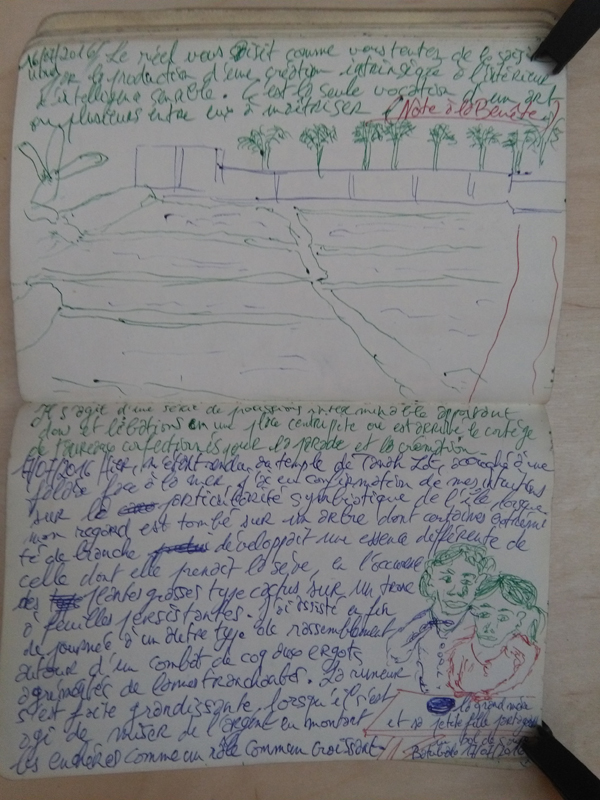 16/07/2016 Le réel vous saisit comme vous tentez de le saisir
par la production d'une création intrinsèque à l'intérieur
d'intelligence sensible. C'est la seule vocation d'un art
ou plusieurs entre eux à maîtriser (Note à la Benête !)
Il s'agit d'une série de processions interminable apportant
dons et libations en une place centripète où est arrivé le cortège
de confectionnés pour la parade et la crémation.
17/07/2016 Hier, m'étant rendu au temple de Tanah Lot, accroché à une
falaise face à la mer, j'ai eu confirmation de mes intuitions
sur la particularité symbiotique de l'île lorsque
mon regard est tombé sur un arbre dont certaines
té de branche développait une essence différente de
celle dont elle prenait la sève, en l'occurence
des plantes grasses type cactus sur un tronc
à feuilles persistantes. J'ai assisté en fin
de journée à un autre type de rassemblement
autour d'un combat de coq aux ergots
agrémentés de lames tranchantes. La rumeur
s'est faite grandissante lorsqu'il s'est
agi de miser de l'argent en montant
les enchères comme un râle commun croissant.
la grand mère
et sa petite fille partageant
bol de
17/07/2016